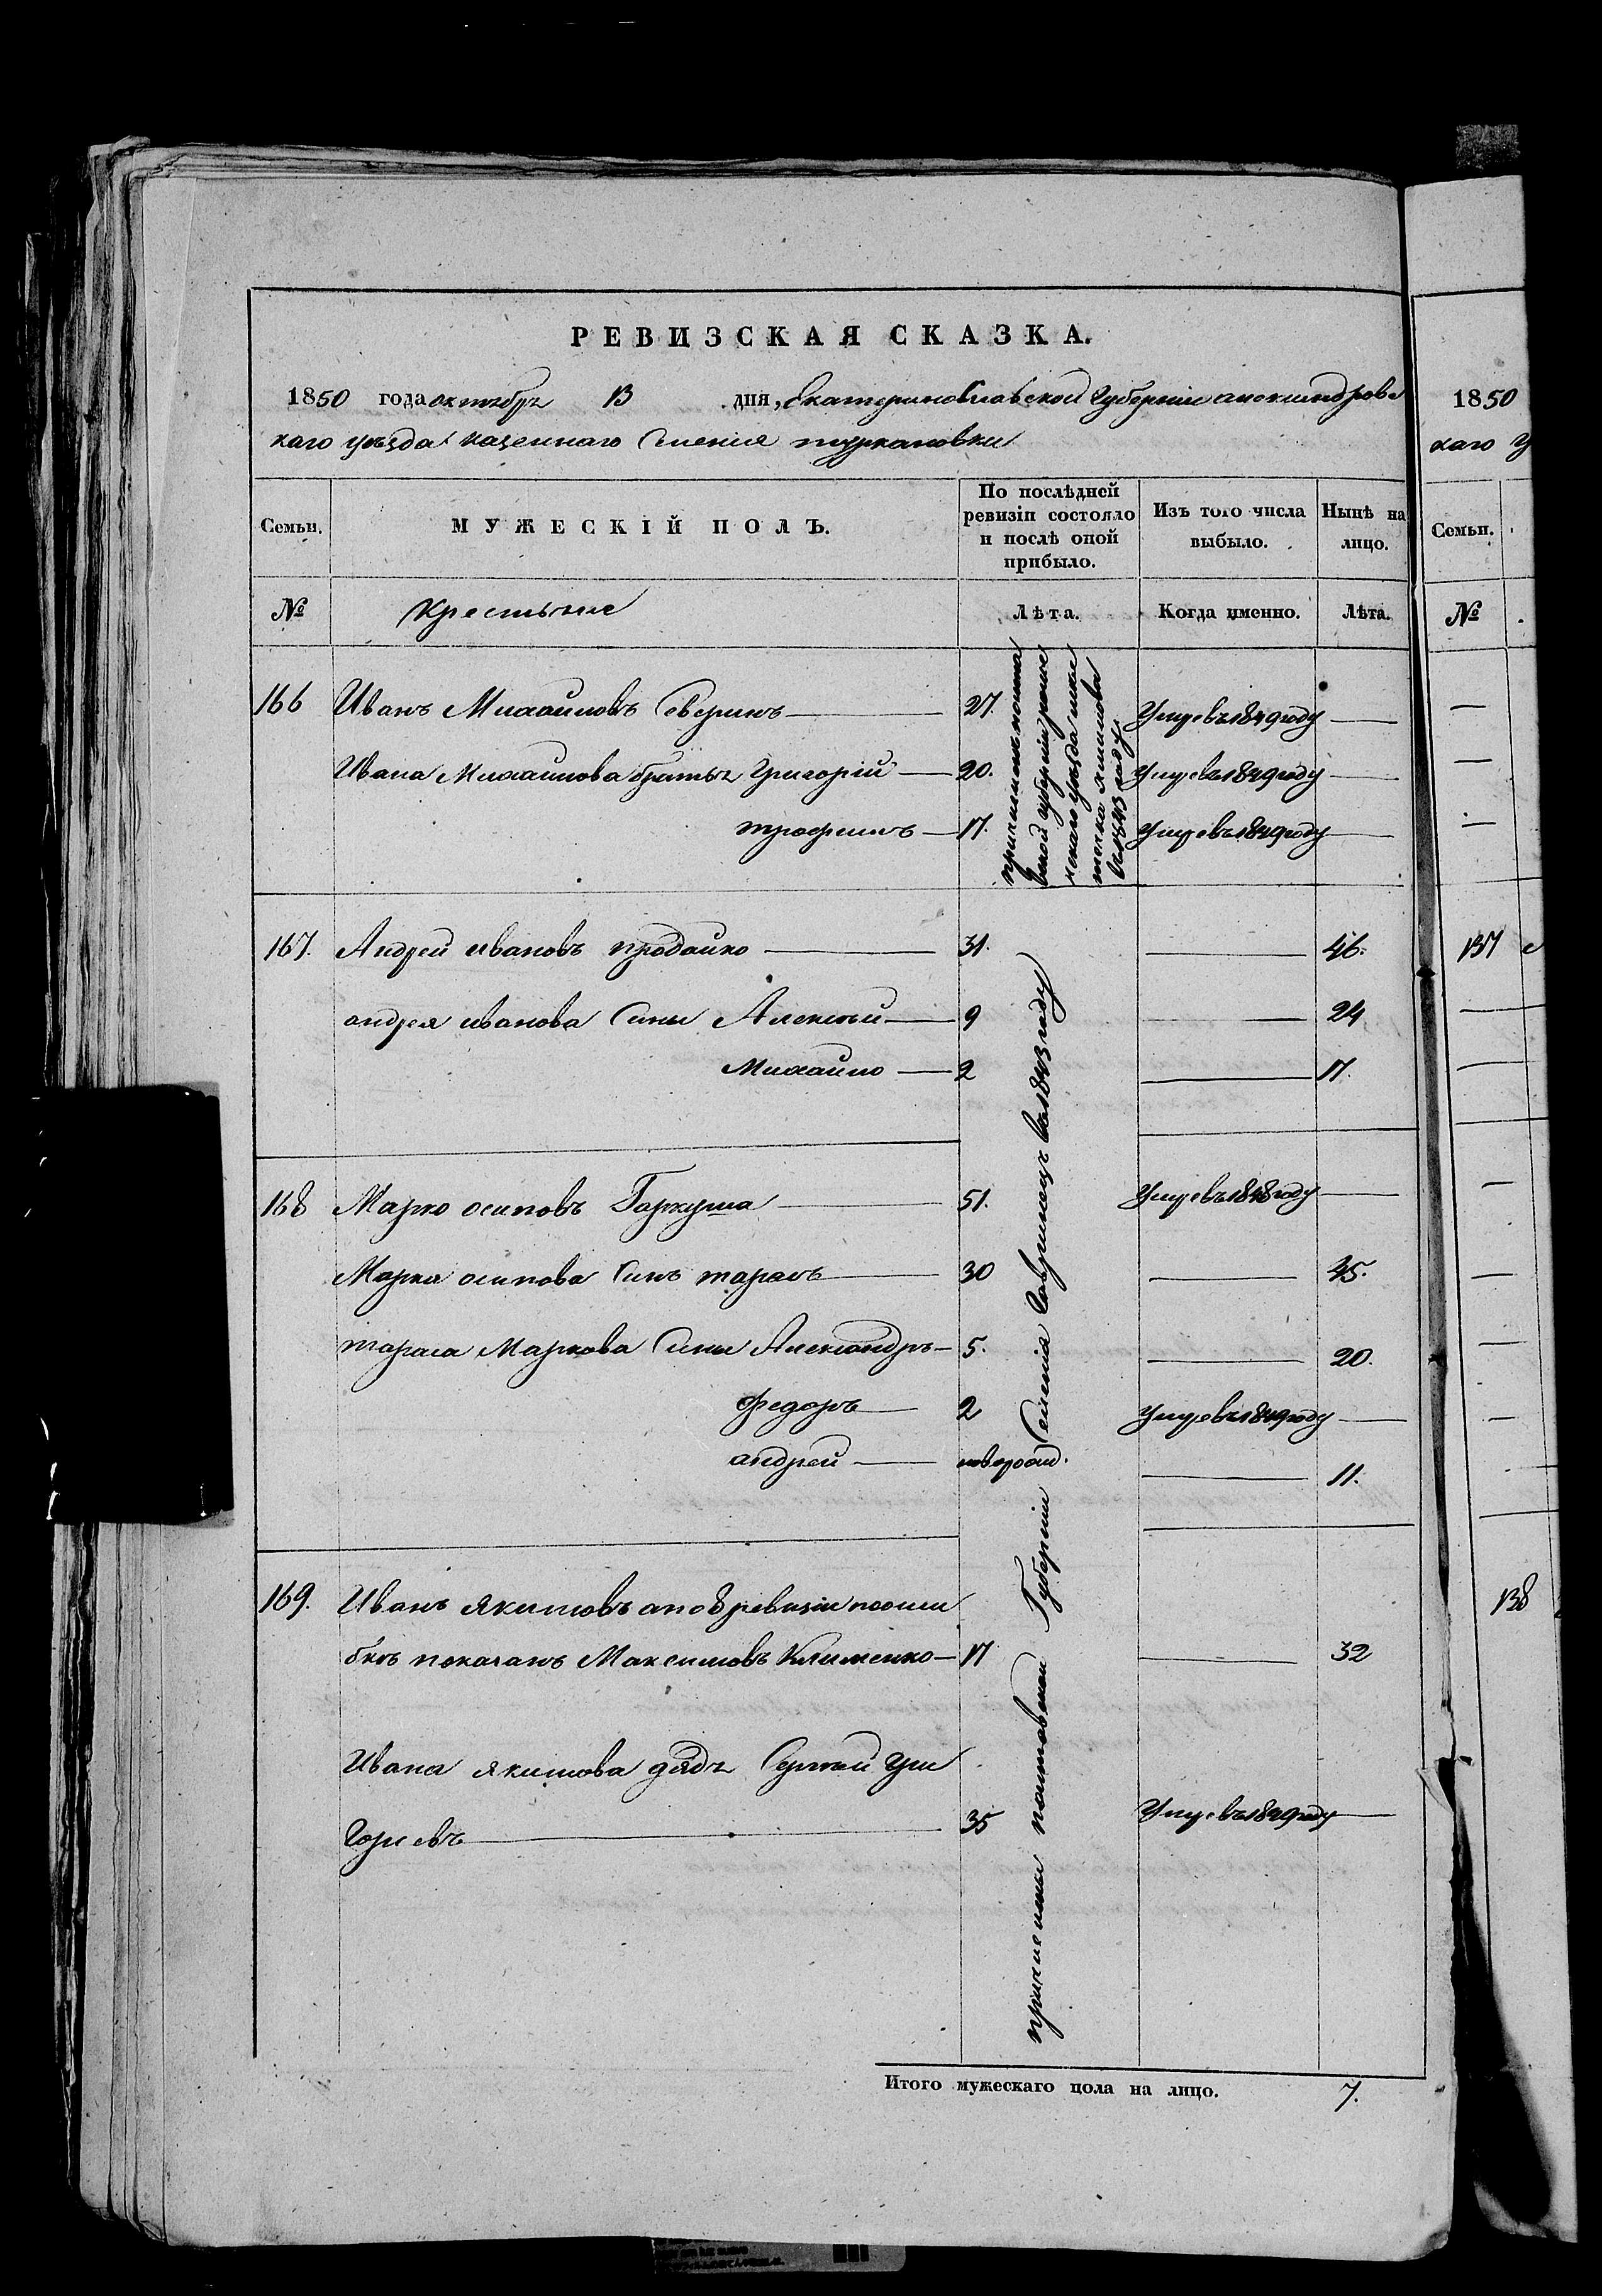 РЕВИЗСКАЯ СКАЗКА.
1850 года октября 13 дня, Екатеринославской Губернии александровс
каго уѣзда казеннаго Селения туркановки
Семьи.
МУЖЕСКІЙ ПОЛЪ.
По послѣдней ревизіи состояло и послѣ оной прибыло.
Изъ того числа выбыло.
Нынѣ на лицо.
№ Крестьяне Лѣта. Когда именно. Лѣта.
166 Иванъ Михайловъ Северинъ 27. Умре въ 1849 году
Ивана Михаилова братья Григорій 20. Умре въ 1849 году
трофимъ 17. Умре въ 1849 году
167. Андрей ивановъ продайко 31. 46.
андрея иванова Сины Алексѣй 9 24
Михайло 2 17.
168 Марко осиповъ Гаркуша 51. Умре въ 1848 году
Марка осипова Синъ тарасъ 30 45.
тараса Маркова Сины Александръ 5. 20.
федоръ 2 Умре въ 1849 году
андрей новорожд. 11.
причислены полтавской Губерніи Селенія въ 1843 году
169. Иванъ якимовъ а по 8 ревизіи по оши
бкъ показанъ Максимовъ Клименко 17 32
Ивана якимова дядъ Сергѣй Гри
горіевъ 35 Умре въ 1849 году
Итого мужескаго пола на лицо. 7.
1850
каго У
Семьи.
№
137
138